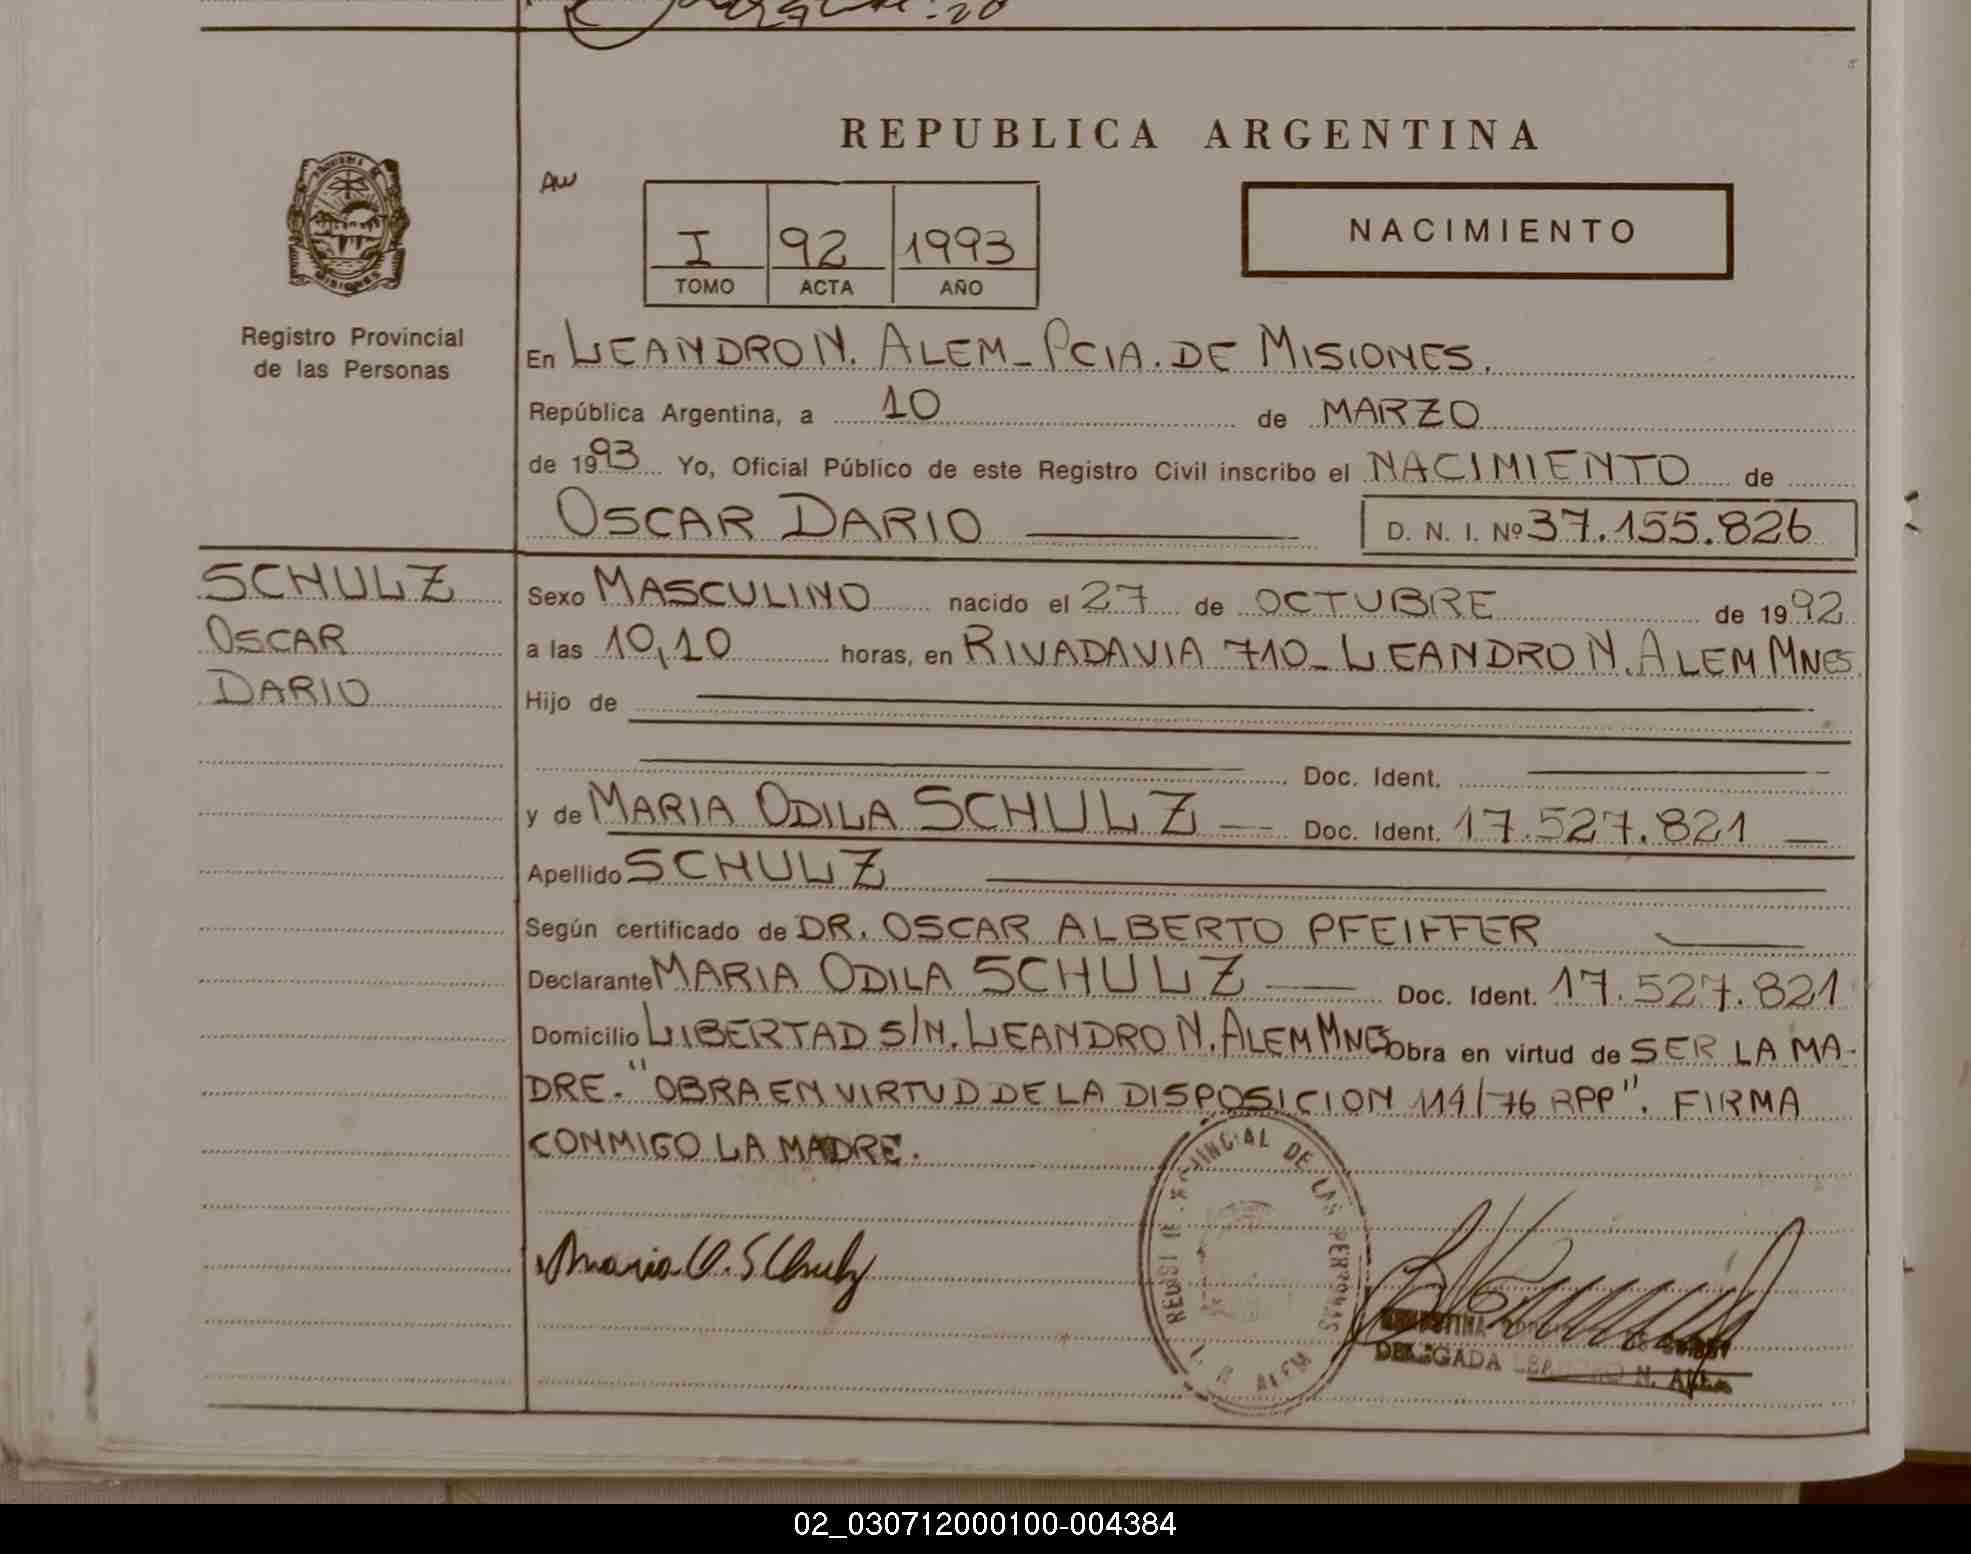 REPUBLICA ARGENTINA
AW
I 92 1993
TOMO ACTA AÑO
NACIMIENTO
MISIONES
Registro Provincial
de las Personas
En LEANDRO N. ALEM - PCIA. DE MISIONES.
República Argentina, a 10 de MARZO
de 1993 Yo, Oficial Público de este Registro Civil inscribo el NACIMIENTO de
OSCAR DARIO D. N. I. Nº 37.155.826
SCHULZ
OSCAR
DARIO
Sexo MASCULINO nacido el 27 de OCTUBRE de 1992
a las 10,10 horas, en RIVADAVIA 710 - LEANDRO N. ALEM MNES
Hijo de
Doc. Ident.
y de MARIA ODILA SCHULZ Doc. Ident. 17.527.821
Apellido SCHULZ
Según certificado de DR. OSCAR ALBERTO PFEIFFER
Declarante MARIA ODILA SCHULZ Doc. Ident. 17.527.821
Domicilio LIBERTAD S/N. LEANDRO N. ALEM MNES Obra en virtud de SER LA MA-
DRE. "OBRA EN VIRTUD DE LA DISPOSICION 114/76 RPP". FIRMA
CONMIGO LA MADRE.
Maria O. Schulz
PROVINCIAL DE LAS PERSONAS
ALEM
DELEGADA N. ALEM
02_030712000100-004384